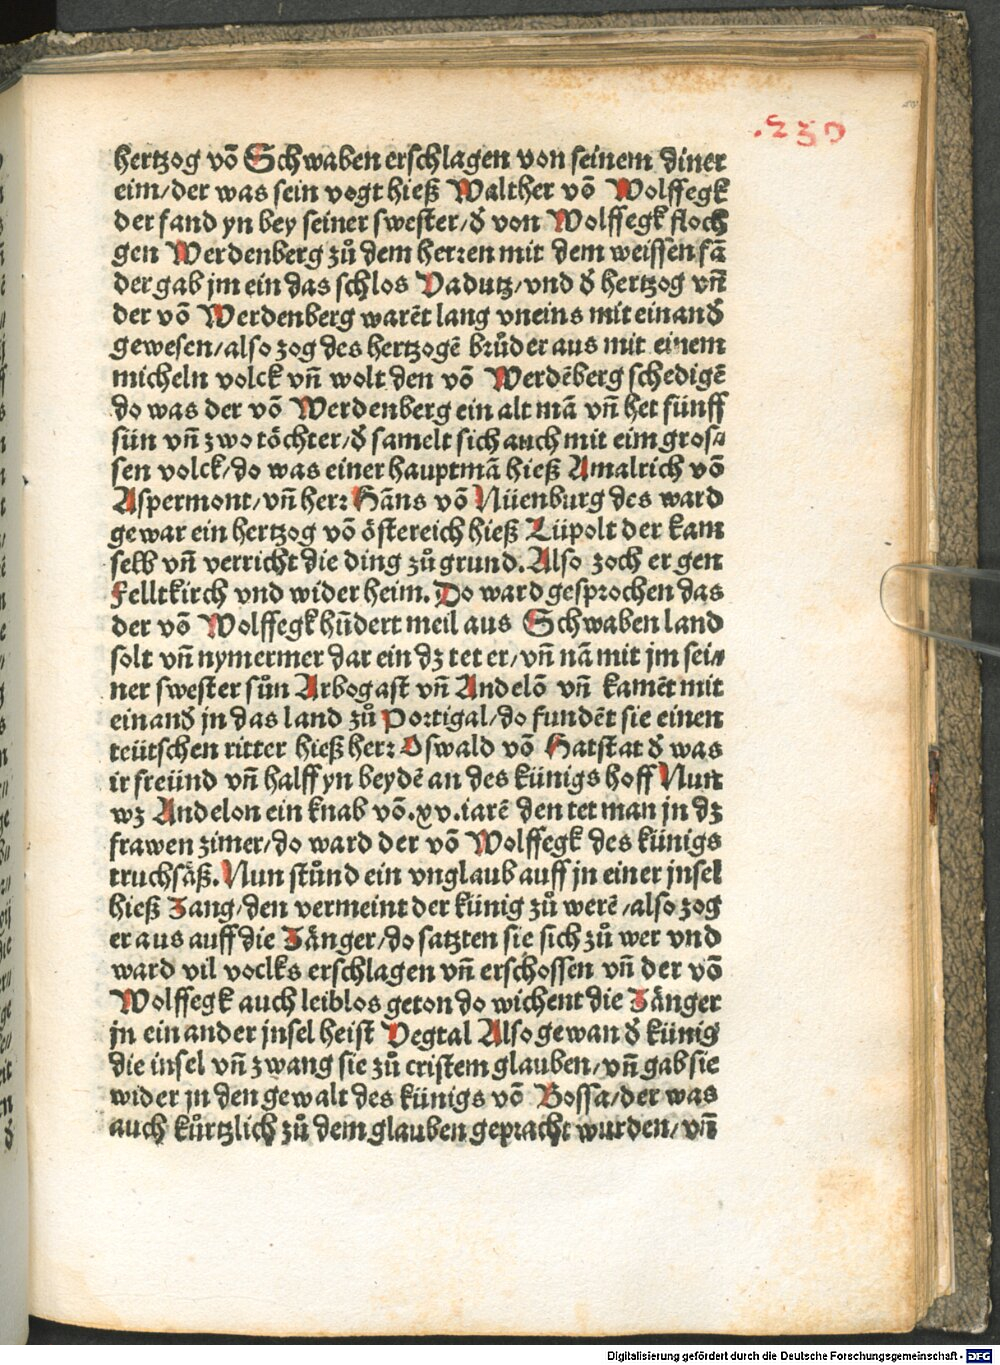 .230
hertzog võ Schwaben erschlagen von seinem diner
eim/der was sein vogt hieß Walther võ Wolffegk
der fand yn bey seiner swester/đ von Wolffegk floch
gen Werdenberg zů dem herren mit dem weissen fã
der gab jm ein das schlos Vadutz/vnd đ hertzog vñ
der võ Werdenberg warẽt lang vneins mit einanđ
gewesen/also zog des hertzogẽ brůder aus mit einem
micheln volck vñ wolt den võ Werdẽberg schedigẽ
do was der võ Werdenberg ein alt mã vñ het fünff
sün vñ zwo töchter/đ samelt sich auch mit eim gros⸗
sen volck/do was einer hauptmã hieß Amalrich võ
Aspermont/vñ herr Hãns võ Nüenburg des ward
gewar ein hertzog võ östereich hieß Lüpolt der kam
selb vñ verricht die ding zů grund. Also zoch er gen
Felltkirch vnd wider heim. Do ward gesprochen das
der võ Wolffegk hũdert meil aus Schwaben land
solt vñ nymermer dar ein dz tet er/vñ nã mit jm sei⸗
ner swester sůn Arbogast vñ Andelõ vñ kamẽt mit
einanđ jn das land zů Portigal/do fundẽt sie einen
teütschen ritter hieß herr Oswald võ Hatstat đ was
ir freünd vñ halff yn beydẽ an des künigs hoff Nun
wz Andelon ein knab võ .xv. iarẽ den tet man jn dz
frawen zimer/do ward der võ Wolffegk des künigs
truchsäß. Nun stůnd ein vnglaub auff jn einer jnsel
hieß Zang/den vermeint der künig zů werẽ/also zog
er aus auff die Zänger/do satzten sie sich zů wer vnd
ward vil voclks erschlagen vñ erschossen vñ der võ
Wolffegk auch leiblos geton do wichent die Zänger
jn ein ander jnsel heist Vegtal Also gewan đ künig
die insel vñ zwang sie zů cristem glauben/vñ gab sie
wider jn den gewalt des künigs võ Bossa/der was
auch kürtzlich zů dem glauben gepracht wurden/vñ
Digitalisierung gefördert durch die Deutsche Forschungsgemeinschaft - DFG